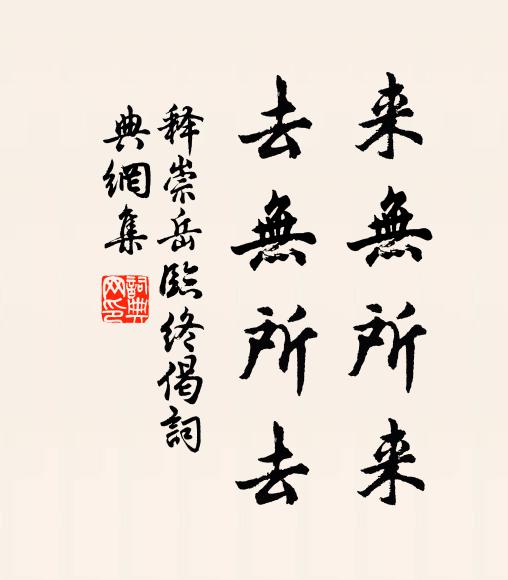 来無所来
去無所去
释崇岳臨终偈詞
典網集
詞典网印